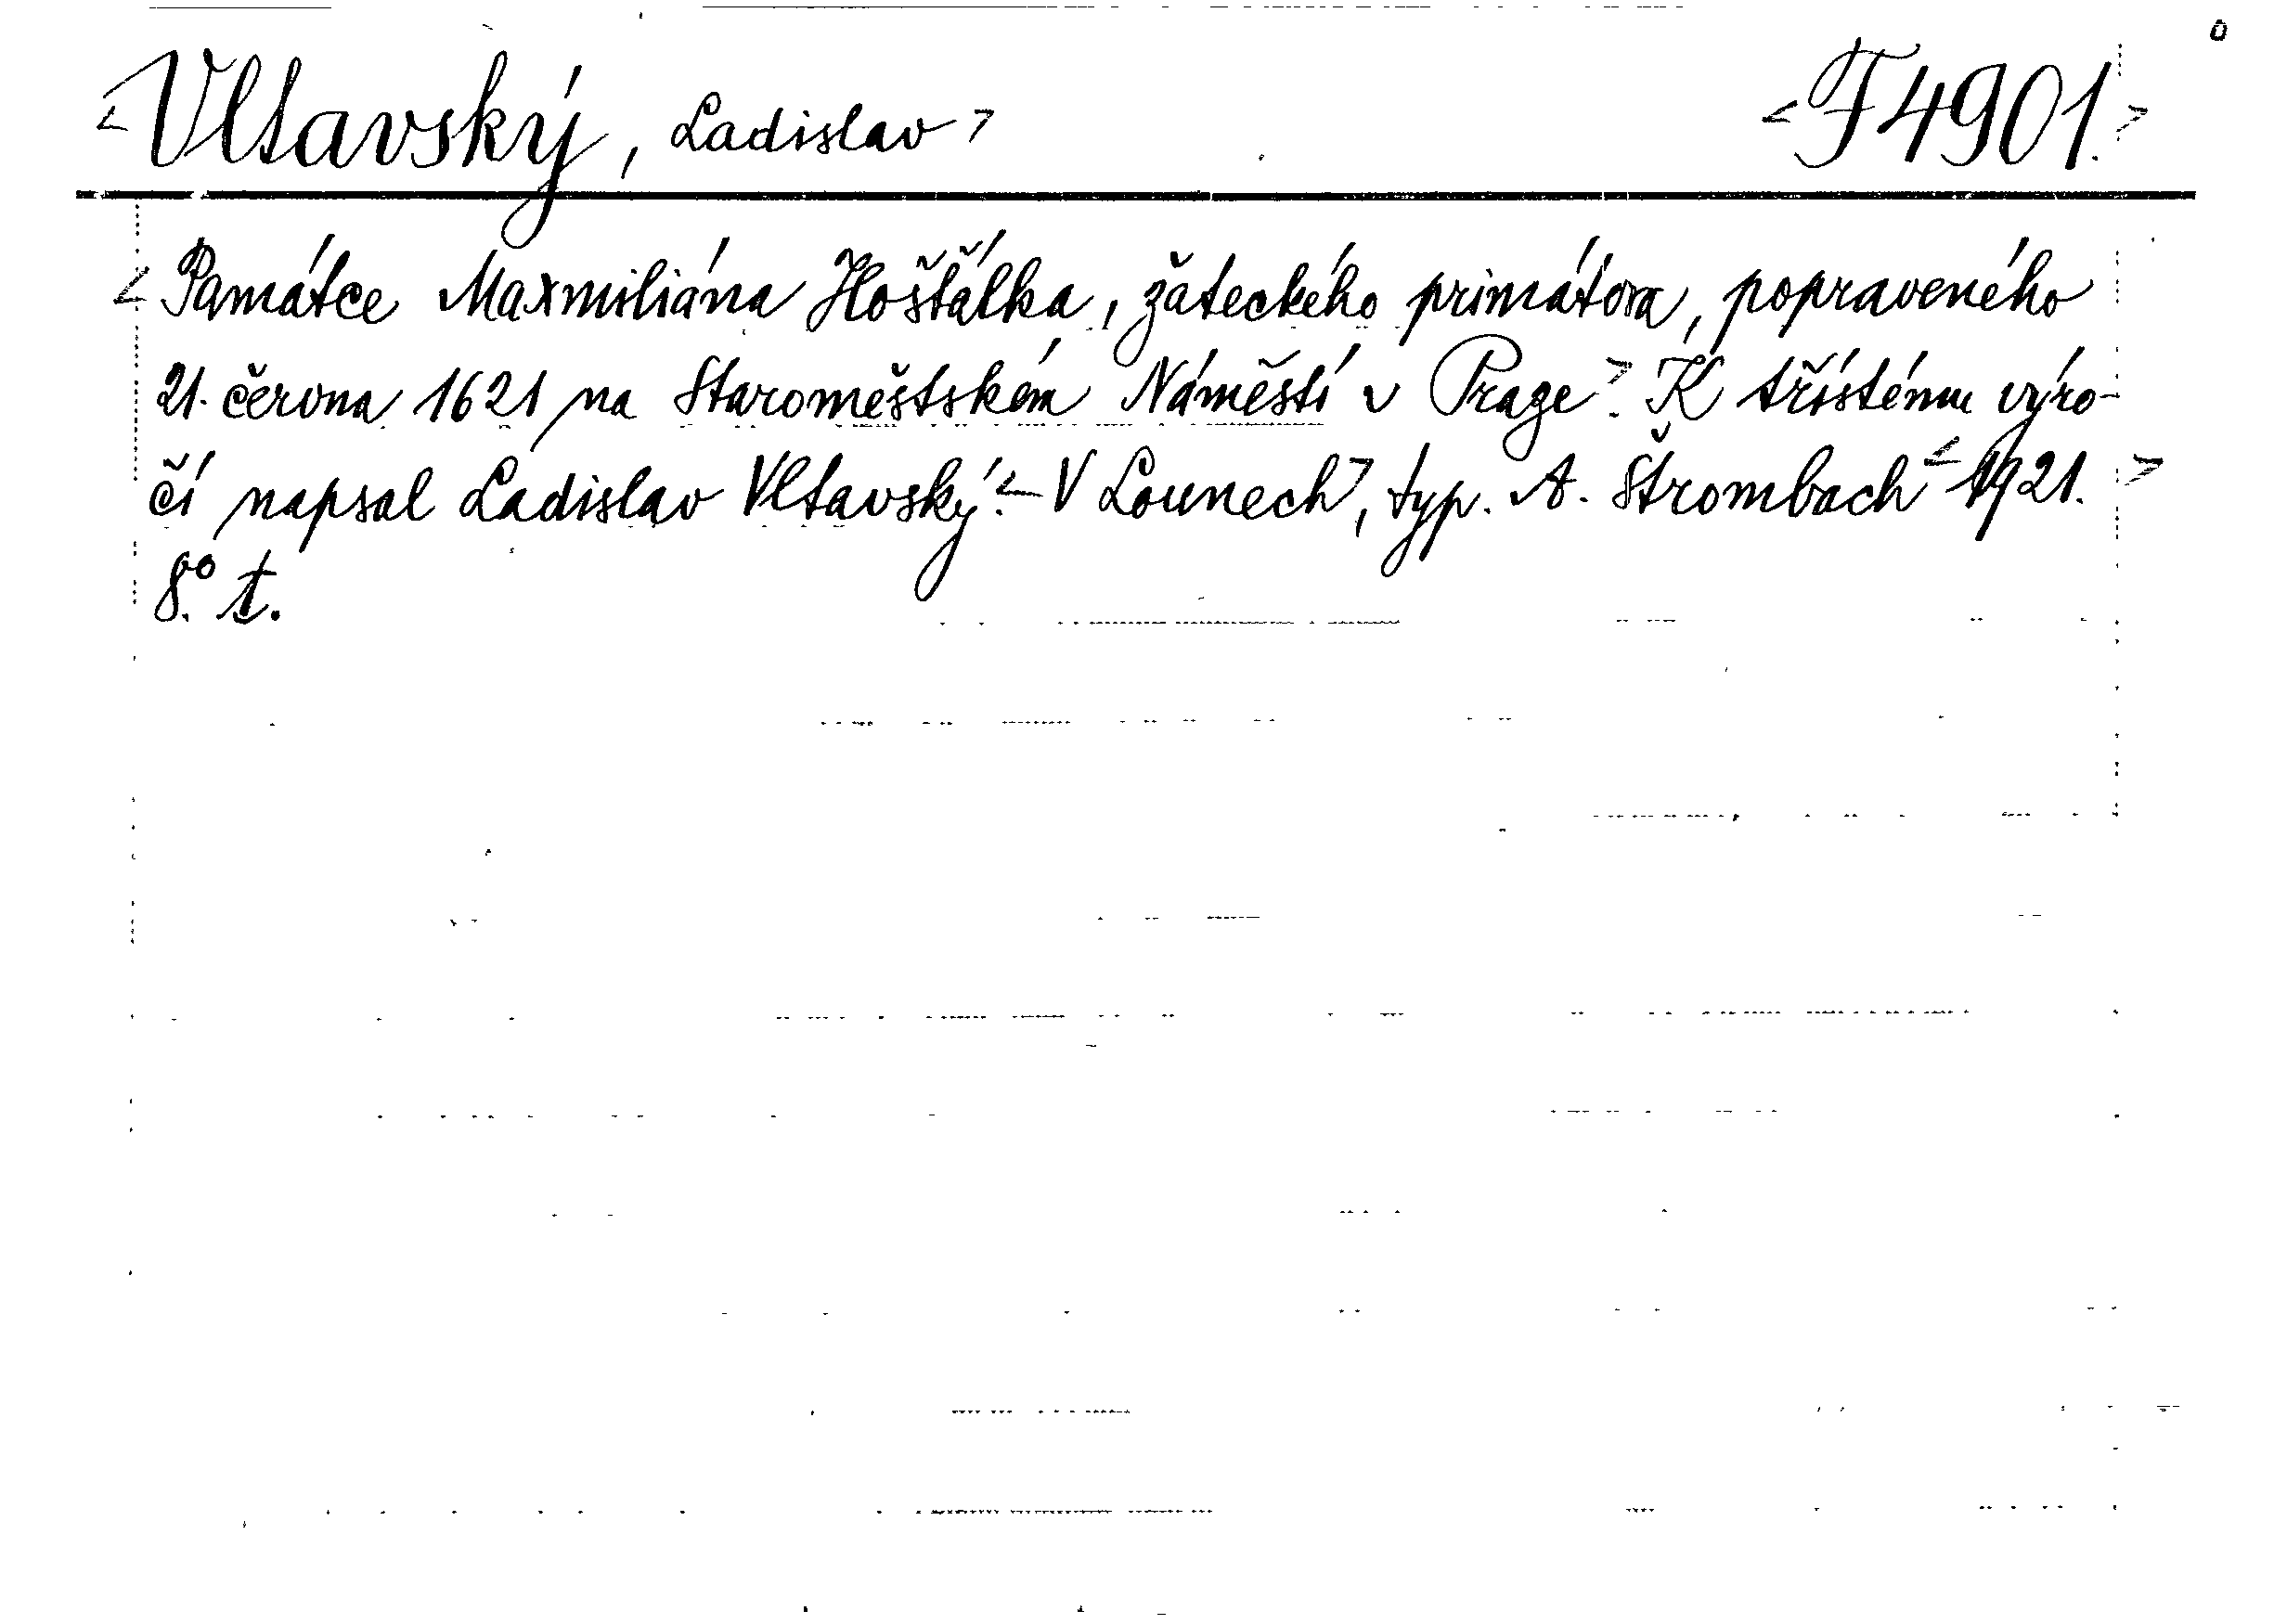 <Vltavský, Ladislav> <F 4901.>
<Památce Maxmiliána Hošťálka, žateckého primátora, popraveného
21. června 1621 na Staroměstském Náměstí v Praze>. K třístému výro-
čí napsal Ladislav Vltavský. <V Lounech>, typ. A. Štrombach <1921.>
8.° t.